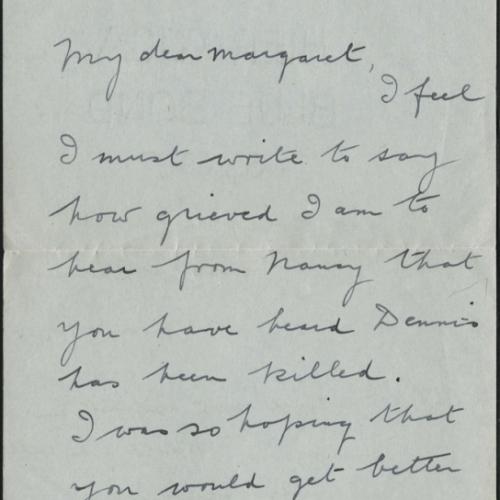 My dear Margaret,
I feel
I must write to say
how grieved I am to
hear from Nancy that
you have heard Dennis
has been killed.
I was so hoping that
you would get better